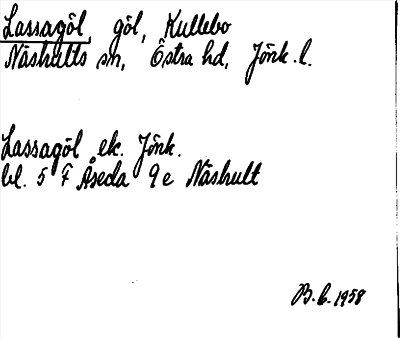 Lassagöl, göl, Kullebo
Näshults sn, Östra hd, Jönk. l.
Lassagöl ek. Jönk.
bl. 5 F Åseda 9 e Näshult
B. b. 1958